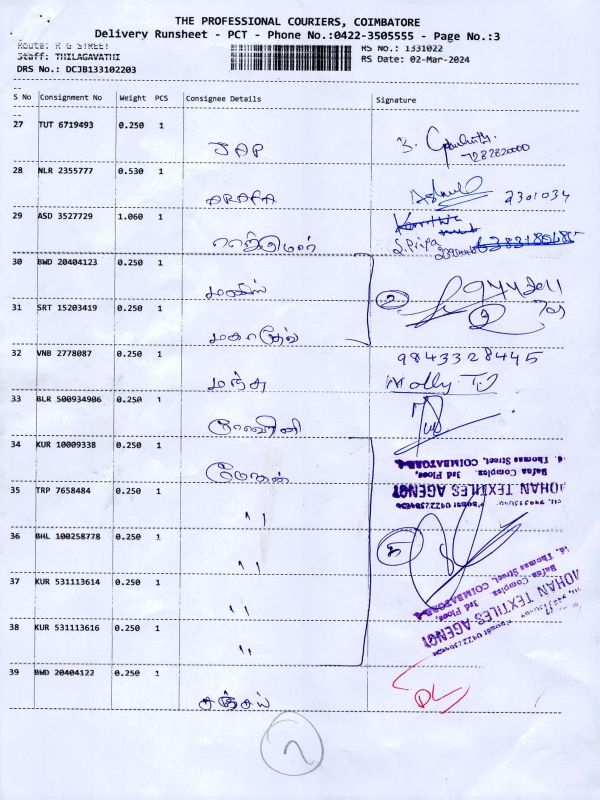 THE PROFESSIONAL COURIERS, COIMBATORE
Delivery Runsheet - PCT - Phone No.:0422-3505555 - Page No.:3
Route: R G STREET
Staff: THILAGAVATHI
DRS No.: DCJB133102203
RS No.: 1331022
RS Date: 02-Mar-2024
S No Consignment No Weight PCS Consignee Details Signature
27 TUT 6719493 0.250 1
JAP
7282820000
28 NLR 2355777 0.530 1
ARAFA
2301034
29 ASD 3527729 1.060 1
S. Priya
30 BWD 20404123 0.250 1
2
31 SRT 15203419 0.250 1
மகாதேவ்
32 VNB 2778087 0.250 1
9843328445
மஞ்சு Molly TJ
33 BLR 500934906 0.250 1
34 KUR 10009338 0.250 1
மோகன்
35 TRP 7658484 0.250 1
"
MOHAN TEXTILES AGENCY
Bafna Complex, 3rd Floor,
Thomas Street, COIMBATORE-1
36 BHL 100258778 0.250 1
"
5
37 KUR 531113614 0.250 1
"
38 KUR 531113616 0.250 1
"
MOHAN TEXTILES AGENCY
Bafna Complex, 3rd Floor,
Thomas Street, COIMBATORE
39 BWD 20404122 0.250 1
சஞ்சய்
DL
2